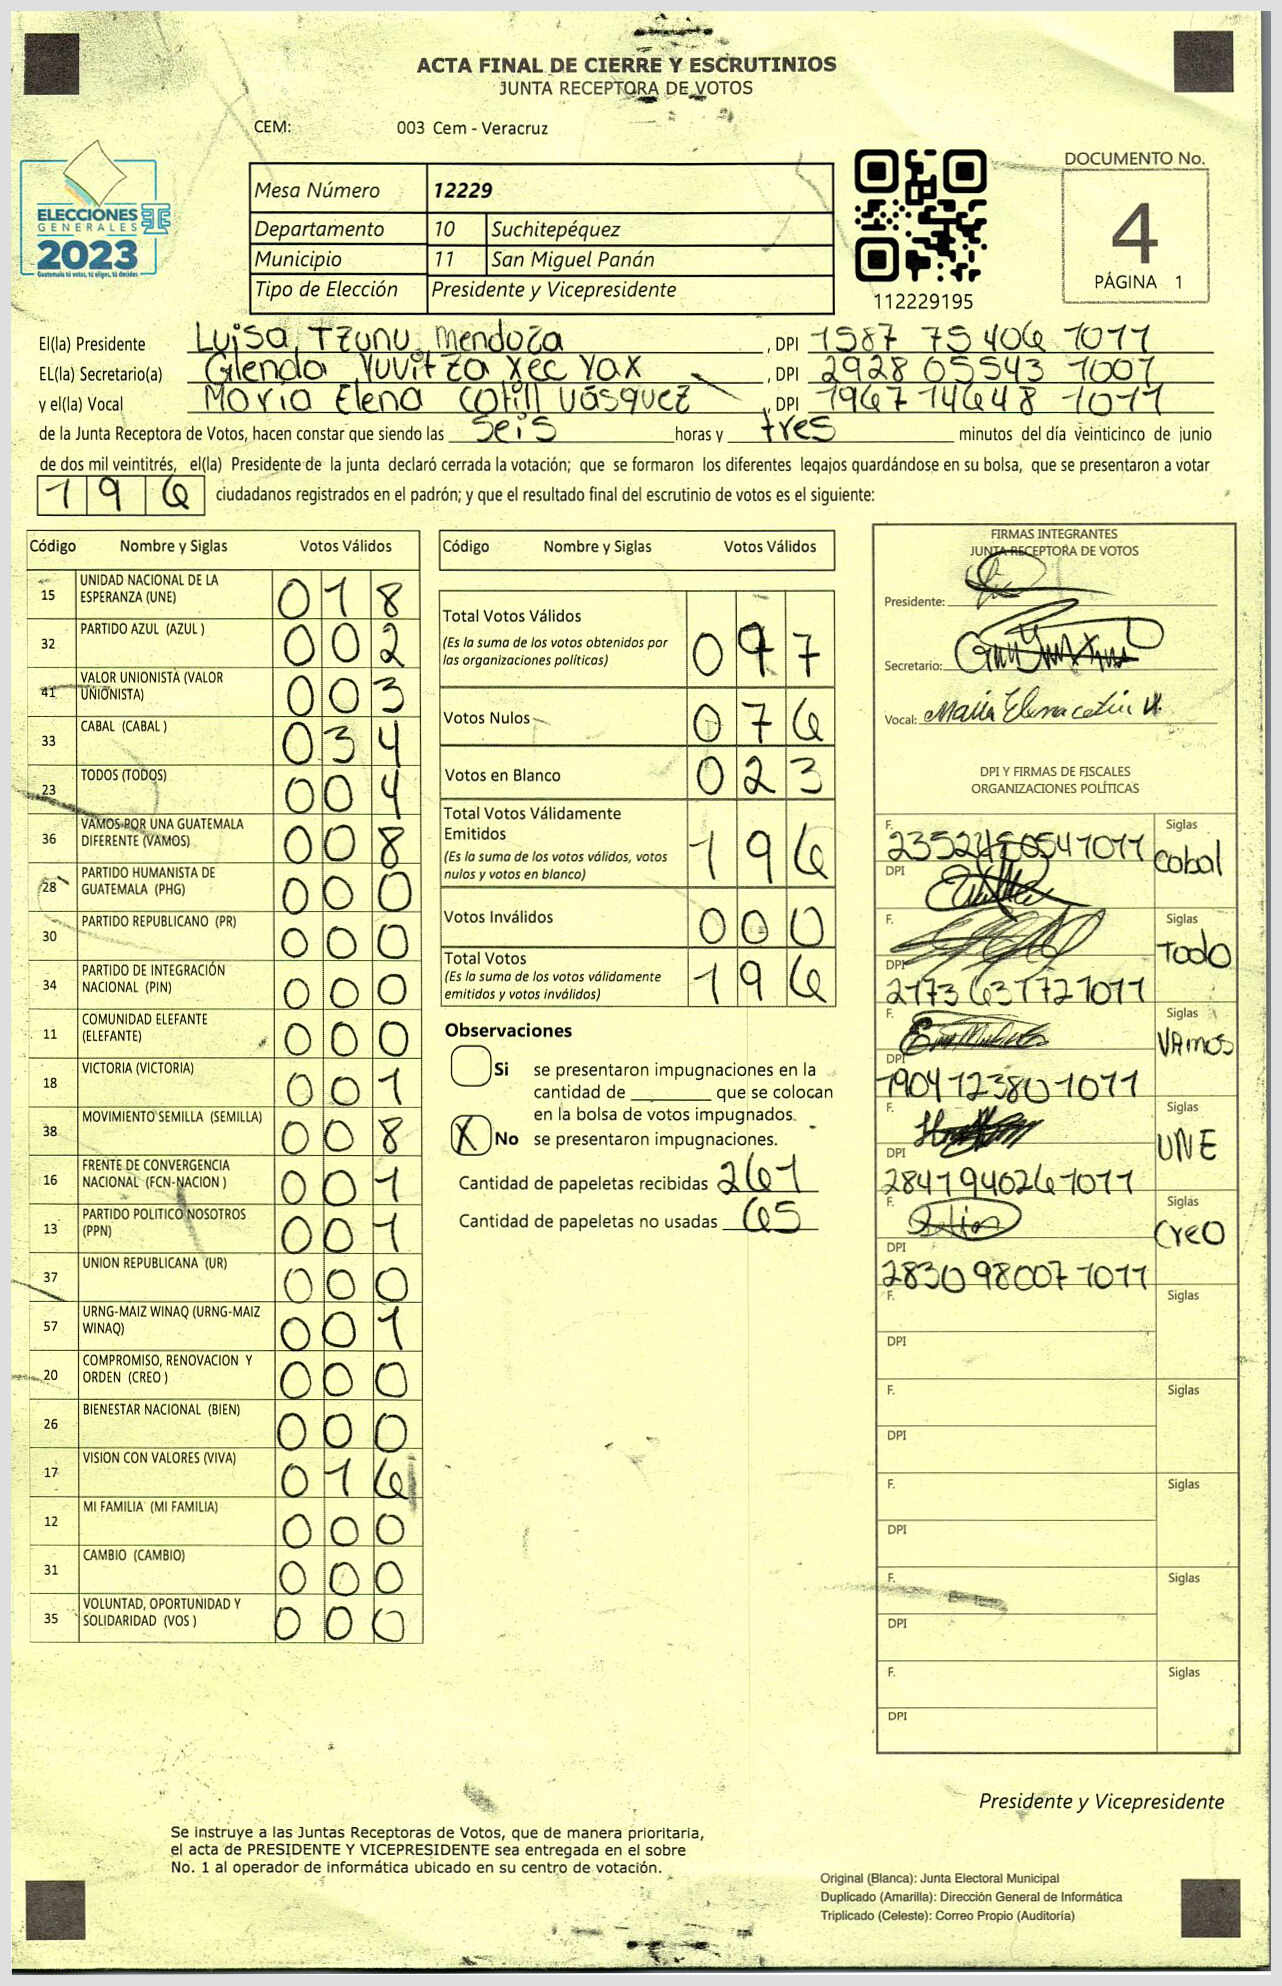 ACTA FINAL DE CIERRE Y ESCRUTINIOS
JUNTA RECEPTORA DE VOTOS
CEM: 003 Cem - Veracruz
ELECCIONES
GENERALES
2023
Guatemala tú votas, tú eliges, tú decides
Mesa Número 12229
Departamento 10 Suchitepéquez
Municipio 11 San Miguel Panán
Tipo de Elección Presidente y Vicepresidente
112229195
DOCUMENTO No.
4
PÁGINA 1
El(la) Presidente Luisa Tzunu Mendoza , DPI 1587 75406 1011
EL(la) Secretario(a) Glenda Yuvitza Xec Yax , DPI 2928 05543 1007
y el(la) Vocal María Elena Cotill Vásquez , DPI 1967 14648 1011
de la Junta Receptora de Votos, hacen constar que siendo las seis horas y tres minutos del día veinticinco de junio
de dos mil veintitrés, el(la) Presidente de la junta declaró cerrada la votación; que se formaron los diferentes legajos guardándose en su bolsa, que se presentaron a votar
196 ciudadanos registrados en el padrón; y que el resultado final del escrutinio de votos es el siguiente:
Código Nombre y Siglas Votos Válidos
15 UNIDAD NACIONAL DE LA ESPERANZA (UNE) 018
32 PARTIDO AZUL (AZUL ) 002
41 VALOR UNIONISTA (VALOR UNIONISTA) 003
33 CABAL (CABAL ) 034
23 TODOS (TODOS) 004
36 VAMOS POR UNA GUATEMALA DIFERENTE (VAMOS) 008
28 PARTIDO HUMANISTA DE GUATEMALA (PHG) 000
30 PARTIDO REPUBLICANO (PR) 000
34 PARTIDO DE INTEGRACIÓN NACIONAL (PIN) 000
11 COMUNIDAD ELEFANTE (ELEFANTE) 000
18 VICTORIA (VICTORIA) 001
38 MOVIMIENTO SEMILLA (SEMILLA) 008
16 FRENTE DE CONVERGENCIA NACIONAL (FCN-NACION ) 001
13 PARTIDO POLITICO NOSOTROS (PPN) 001
37 UNION REPUBLICANA (UR) 000
57 URNG-MAIZ WINAQ (URNG-MAIZ WINAQ) 001
20 COMPROMISO, RENOVACION Y ORDEN (CREO ) 000
26 BIENESTAR NACIONAL (BIEN) 000
17 VISION CON VALORES (VIVA) 016
12 MI FAMILIA (MI FAMILIA) 000
31 CAMBIO (CAMBIO) 000
35 VOLUNTAD, OPORTUNIDAD Y SOLIDARIDAD (VOS ) 000
Código Nombre y Siglas Votos Válidos
Total Votos Válidos 097
(Es la suma de los votos obtenidos por
las organizaciones políticas)
Votos Nulos 076
Votos en Blanco 023
Total Votos Válidamente
Emitidos 196
(Es la suma de los votos válidos, votos
nulos y votos en blanco)
Votos Inválidos 000
Total Votos 196
(Es la suma de los votos válidamente
emitidos y votos inválidos)
Observaciones
Si se presentaron impugnaciones en la
cantidad de ________ que se colocan
en la bolsa de votos impugnados.
X No se presentaron impugnaciones.
Cantidad de papeletas recibidas 261
Cantidad de papeletas no usadas 65
FIRMAS INTEGRANTES
JUNTA RECEPTORA DE VOTOS
Presidente:
Secretario:
Vocal: María Elena cotill V.
DPI Y FIRMAS DE FISCALES
ORGANIZACIONES POLÍTICAS
F. Siglas
Cabal
DPI
F. Siglas
Todo
DPI 2173 63172 1011
F. Siglas
VAmos
DPI 1904 12380 1011
F. Siglas
UNE
DPI 2841 94026 1011
F. Siglas
CreO
DPI 2830 98007 1011
F. Siglas
DPI
F. Siglas
DPI
F. Siglas
DPI
F. Siglas
DPI
F. Siglas
DPI
Presidente y Vicepresidente
Se instruye a las Juntas Receptoras de Votos, que de manera prioritaria,
el acta de PRESIDENTE Y VICEPRESIDENTE sea entregada en el sobre
No. 1 al operador de informática ubicado en su centro de votación.
Original (Blanca): Junta Electoral Municipal
Duplicado (Amarilla): Dirección General de Informática
Triplicado (Celeste): Correo Propio (Auditoría)